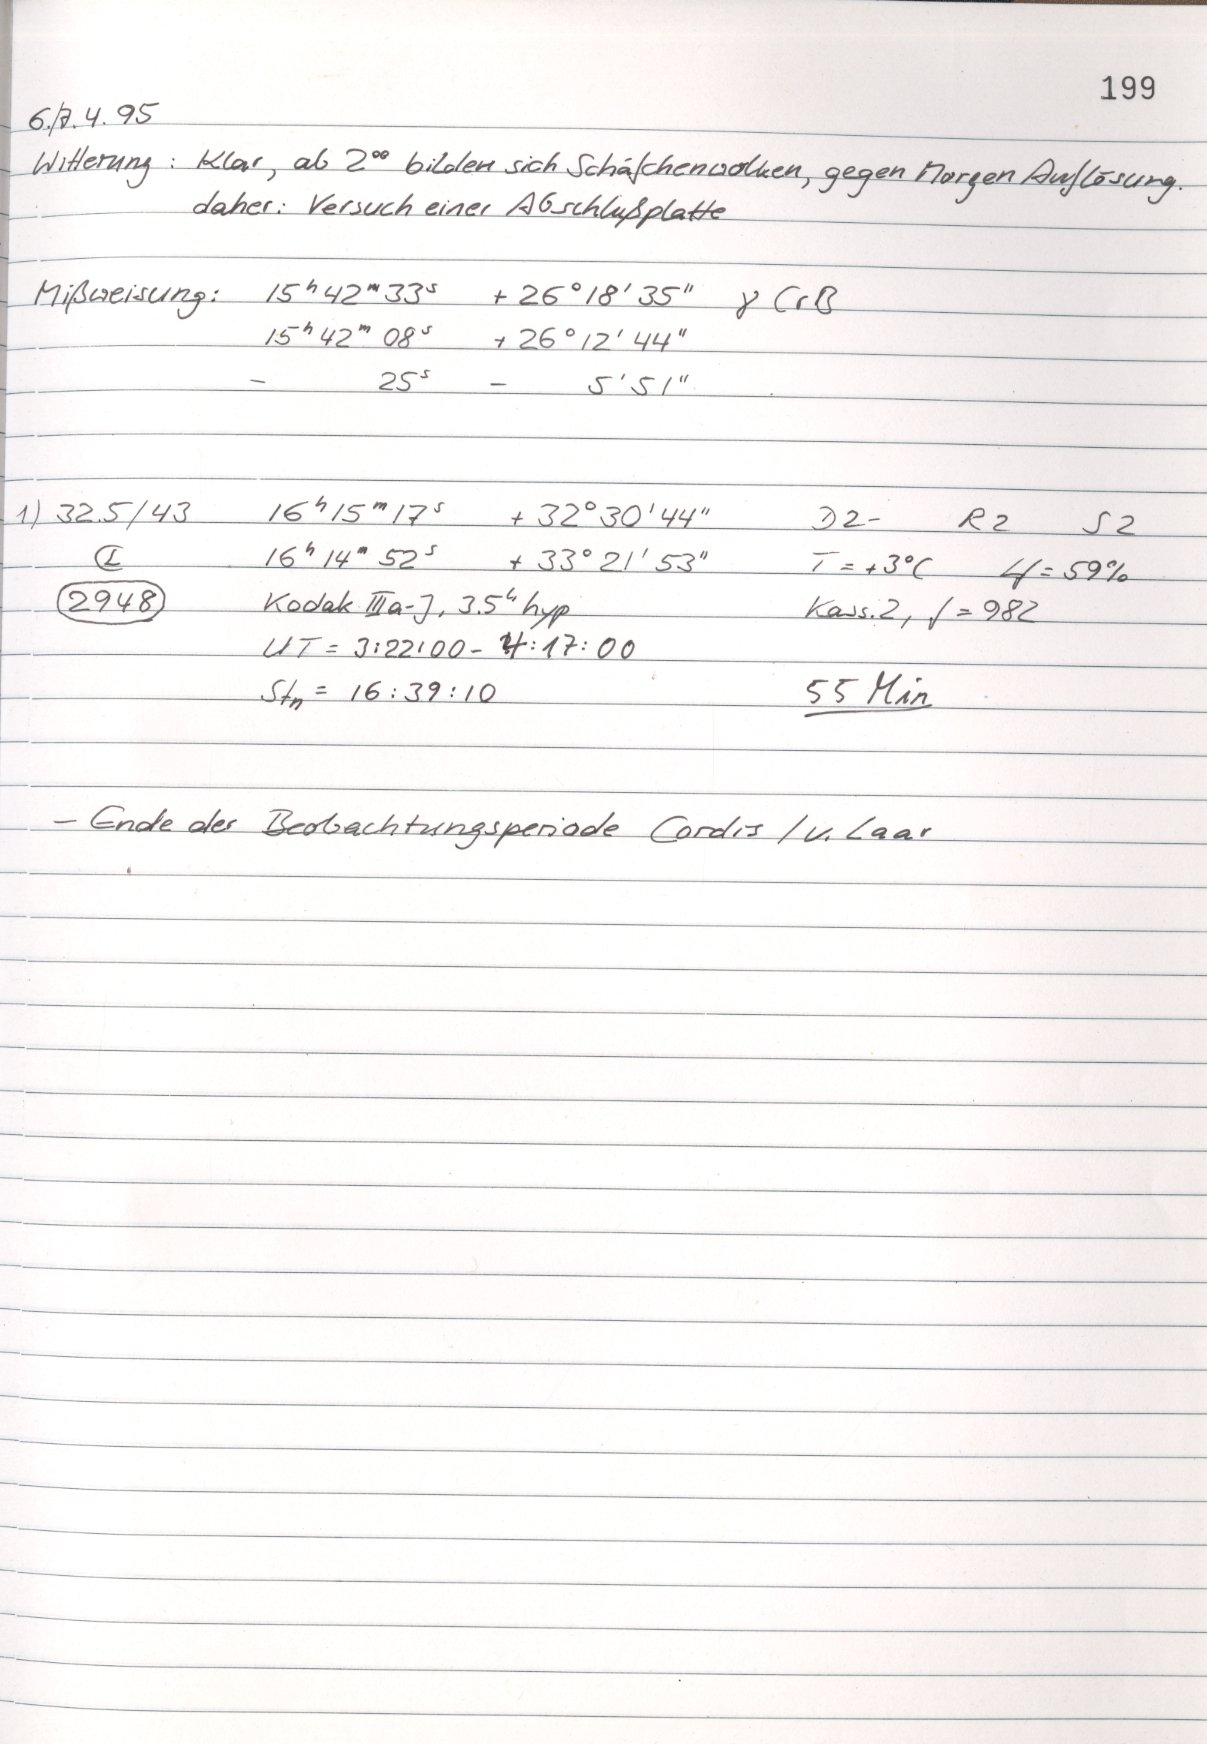 199
6./7.4.95
Witterung: Klar, ab 2⁰⁰ bilden sich Schäfchenwolken, gegen Morgen Auflösung.
daher: Versuch einer Abschlußplatte
Mißweisung: 15ʰ42ᵐ33ˢ +26°18'35" γ CrB
15ʰ42ᵐ08ˢ +26°12'44"
- 25ˢ - 5'51"
1) 32.5/43 16ʰ15ᵐ17ˢ +32°30'44" D2- R2 S2
16ʰ14ᵐ52ˢ +33°21'53" T=+3°C Lf=59%
2948 Kodak IIIa-J, 3.5ʰ hyp Kass.2, f=982
UT = 3:22:00 - 4:17:00
Stₙ = 16:39:10 55 Min
- Ende der Beobachtungsperiode Cordis / v. Laar